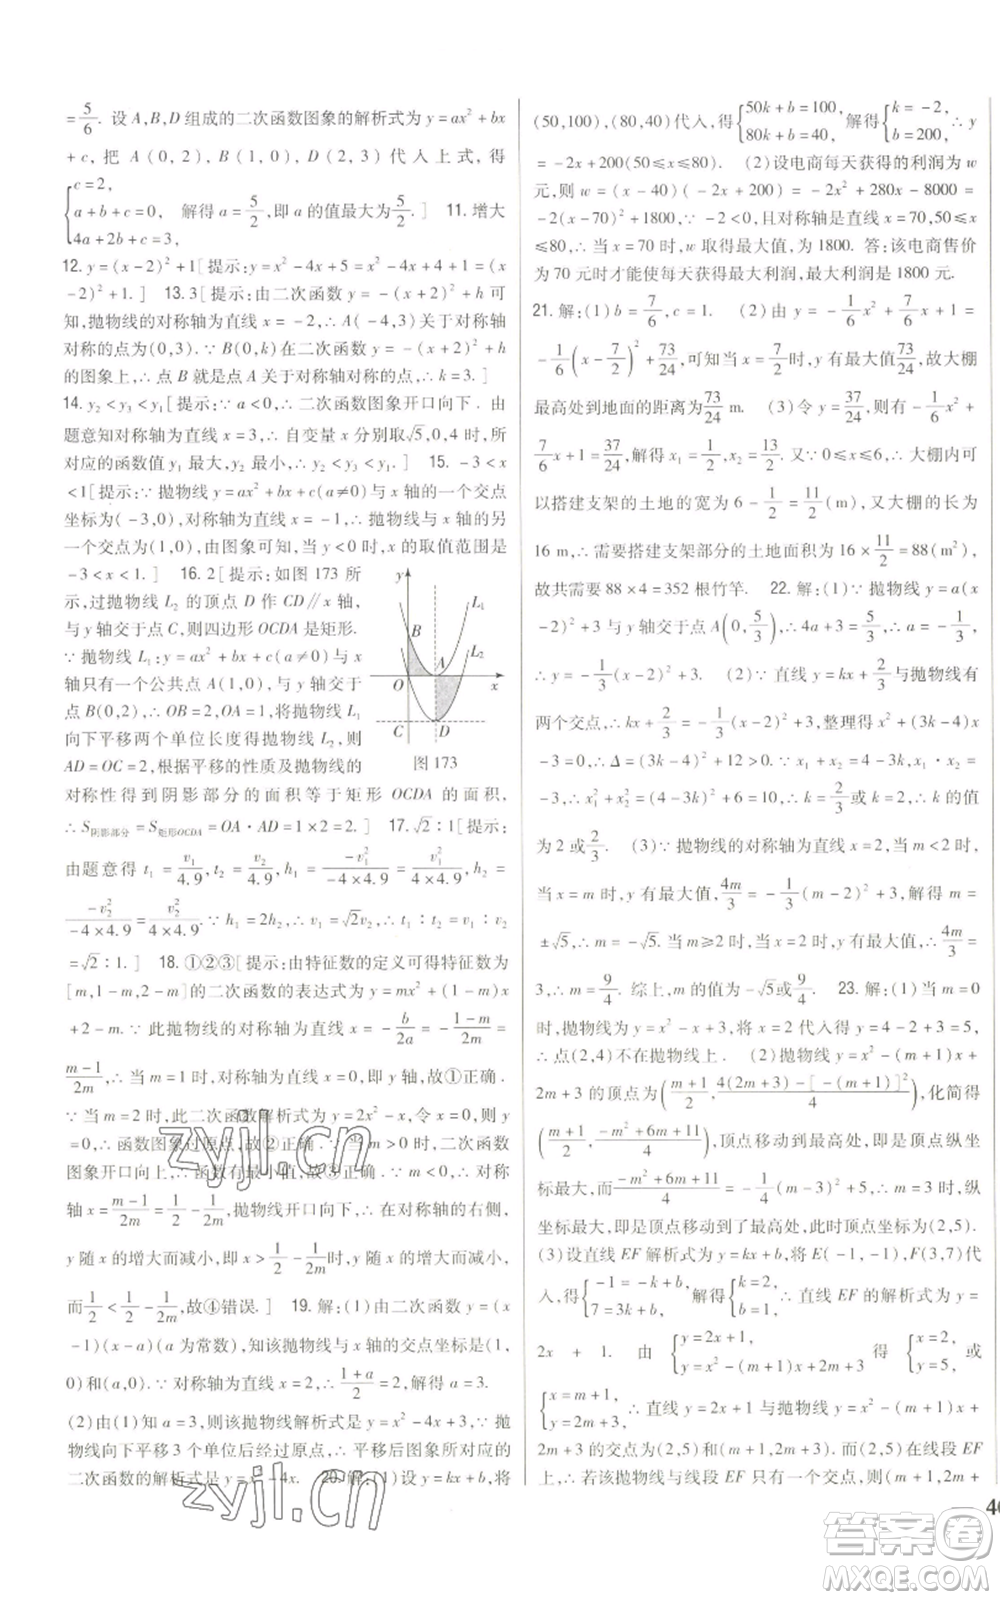 =5/6. 设 A,B,D 组成的二次函数图象的解析式为 y=ax²+bx
+c,把 A(0,2),B(1,0),D(2,3)代入上式,得
{c=2, a+b+c=0, 4a+2b+c=3, 解得 a=5/2,即 a 的值最大为5/2.] 11. 增大
12. y=(x-2)²+1[提示:y=x²-4x+5=x²-4x+4+1=(x
-2)²+1.] 13. 3[提示:由二次函数 y=-(x+2)²+h 可
知,抛物线的对称轴为直线 x=-2,∴A(-4,3)关于对称轴
对称的点为(0,3).∵B(0,k)在二次函数 y=-(x+2)²+h
的图象上,∴点 B 就是点 A 关于对称轴对称的点,∴k=3.]
14. y₂<y₃<y₁[提示:∵a<0,∴二次函数图象开口向下. 由
题意知对称轴为直线 x=3,∴自变量 x 分别取√5,0,4 时,所
对应的函数值 y₁ 最大,y₂ 最小,∴y₂<y₃<y₁.] 15. -3<x
<1[提示:∵抛物线 y=ax²+bx+c(a≠0)与 x 轴的一个交点
坐标为(-3,0),对称轴为直线 x=-1,∴抛物线与 x 轴的另
一个交点为(1,0),由图象可知,当 y<0 时,x 的取值范围是
-3<x<1.] 16. 2[提示:如图 173 所
示,过抛物线 L₂ 的顶点 D 作 CD∥x 轴,
与 y 轴交于点 C,则四边形 OCDA 是矩形.
∵抛物线 L₁:y=ax²+bx+c(a≠0)与 x
轴只有一个公共点 A(1,0),与 y 轴交于
点 B(0,2),∴OB=2,OA=1,将抛物线 L₁
向下平移两个单位长度得抛物线 L₂,则
AD=OC=2,根据平移的性质及抛物线的
y
L₁
B
A
L₂
O
x
C
D
图 173
对称性得到阴影部分的面积等于矩形 OCDA 的面积,
∴S阴影部分=S矩形OCDA=OA·AD=1×2=2.] 17. √2:1[提示:
由题意得 t₁=v₁/4.9,t₂=v₂/4.9,h₁=-v₁²/(-4×4.9),h₂=
-v₂²/(-4×4.9).∵h₁=2h₂,∴v₁=√2v₂,∴t₁:t₂=v₁:v₂
=√2:1.] 18. ①②③[提示:由特征数的定义可得特征数为
[m,1-m,2-m]的二次函数的表达式为 y=mx²+(1-m)x
+2-m.∵此抛物线的对称轴为直线 x=-b/2a=-(1-m)/2m=
(m-1)/2m,∴当 m=1 时,对称轴为直线 x=0,即 y 轴,故①正确.
∵当 m=2 时,此二次函数解析式为 y=2x²-x,令 x=0,则 y
=0,∴函数图象过原点,故②正确.∵当 m>0 时,二次函数
图象开口向上,函数有最小值,故③正确.∵m<0,∴对称
轴 x=(m-1)/2m=1/2-1/2m,抛物线开口向下,∴在对称轴的右侧,
y 随 x 的增大而减小,即 x>1/2-1/2m时,y 随 x 的增大而减小,
而1/2<1/2-1/2m,故④错误.] 19. 解:(1)由二次函数 y=(x
-1)(x-a)(a 为常数),知该抛物线与 x 轴的交点坐标是(1,
0)和(a,0).∵对称轴为直线 x=2,∴(1+a)/2=2,解得 a=3.
(2)由(1)知 a=3,则该抛物线解析式是 y=x²-4x+3,∴抛
物线向下平移 3 个单位后经过原点,∴平移后图象所对应的
二次函数的解析式是 y=x²-4x. 20. 解:(1)设 y=kx+b,将
(50,100),(80,40)代入,得{50k+b=100, 80k+b=40, 解得{k=-2, b=200, ∴y
=-2x+200(50≤x≤80). (2)设电商每天获得的利润为 w
元,则 w=(x-40)(-2x+200)=-2x²+280x-8000=
-2(x-70)²+1800,∵-2<0,且对称轴是直线 x=70,50≤x
≤80,∴当 x=70 时,w 取得最大值,为 1800. 答:该电商售价
为 70 元时才能使每天获得最大利润,最大利润是 1800 元.
21. 解:(1)b=7/6,c=1. (2)由 y=-1/6x²+7/6x+1=
-1/6(x-7/2)²+73/24,可知当 x=7/2时,y 有最大值73/24,故大棚
最高处到地面的距离为73/24 m. (3)令 y=37/24,则有-1/6x²+
7/6x+1=37/24,解得 x₁=1/2,x₂=13/2. 又∵0≤x≤6,∴大棚内可
以搭建支架的土地的宽为 6-1/2=11/2(m),又大棚的长为
16 m,∴需要搭建支架部分的土地面积为 16×11/2=88(m²),
故共需要 88×4=352 根竹竿. 22. 解:(1)∵抛物线 y=a(x
-2)²+3 与 y 轴交于点 A(0,5/3),∴4a+3=5/3,∴a=-1/3.
∴y=-1/3(x-2)²+3. (2)∵直线 y=kx+5/3与抛物线有
两个交点,∴kx+5/3=-1/3(x-2)²+3,整理得 x²+(3k-4)x
-3=0,∴Δ=(3k-4)²+12>0.∵x₁+x₂=4-3k,x₁·x₂=
-3,∴x₁²+x₂²=(4-3k)²+6=10,∴k=2/3或 k=2,∴k 的值
为 2 或2/3. (3)∵抛物线的对称轴为直线 x=2,当 m<2 时,
当 x=m 时,y 有最大值,4m/3=-1/3(m-2)²+3,解得 m=
±√5,∴m=-√5. 当 m≥2 时,当 x=2 时,y 有最大值,∴4m/3=
3,∴m=9/4. 综上,m 的值为-√5或9/4. 23. 解:(1)当 m=0
时,抛物线为 y=x²-x+3,将 x=2 代入得 y=4-2+3=5,
∴点(2,4)不在抛物线上. (2)抛物线 y=x²-(m+1)x+
2m+3 的顶点为((m+1)/2,(4(2m+3)-[-(m+1)]²)/4),化简得
((m+1)/2,(-m²+6m+11)/4),顶点移动到最高处,即是顶点纵坐
标最大,而(-m²+6m+11)/4=-1/4(m-3)²+5,∴m=3 时,纵
坐标最大,即是顶点移动到了最高处,此时顶点坐标为(2,5).
(3)设直线 EF 解析式为 y=kx+b,将 E(-1,-1),F(3,7)代
入得{-1=-k+b, 7=3k+b, 解得{k=2, b=1, ∴直线 EF 的解析式为 y=
2x+1. 由{y=2x+1, y=x²-(m+1)x+2m+3 得{x=2, y=5, 或
{x=m+1, y=2m+3, ∴直线 y=2x+1 与抛物线 y=x²-(m+1)x+
2m+3 的交点为(2,5)和(m+1,2m+3). 而(2,5)在线段 EF
上,∴若该抛物线与线段 EF 只有一个交点,则(m+1,2m+
zyjl.cn
zyjl.cn
答案卷
MXQE.COM